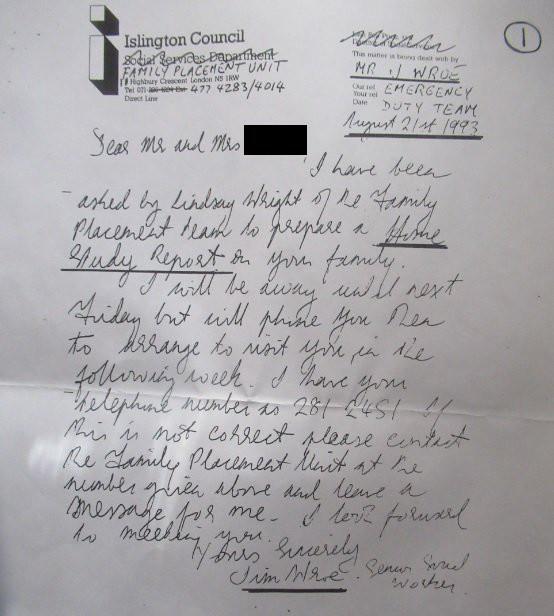 1
Islington Council
Social Services Department
FAMILY PLACEMENT UNIT
Highbury Crescent London N5 1RW
Tel 071 477 4283/4014
Direct Line
This matter is being dealt with by
MR J WROE
Our ref EMERGENCY
Your ref
DUTY TEAM
Date
August 21st 1993
Dear Mr and Mrs
I have been
asked by Lindsay Wright of the Family
Placement team to prepare a Home
Study Report on your family.
I will be away until next
Friday but will phone you then
to arrange to visit you in the
following week. I have your
telephone number as 281 2451 If
this is not correct please contact
the Family Placement Unit at the
number given above and leave a
message for me. I look forward
to meeting you.
Yours Sincerely
Jim Wroe. Senior Social
Worker.